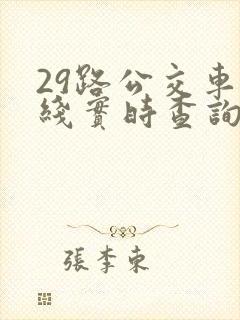 29路公交車
綫實時查詢
張李東